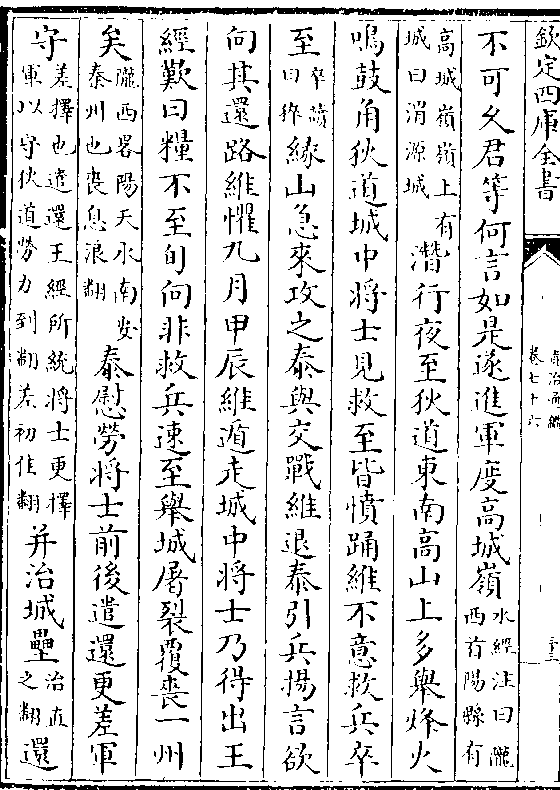 欽定四庫全書
資治通鑑
卷七十六
不可久君等何言如是遂進軍度高城嶺水經注曰隴西首陽縣有
高城嶺嶺上有城曰渭源城潛行夜至狄道東南高山上多舉烽火
鳴鼓角狄道城中將士見救至皆憤踊維不意救兵卒
至卒讀曰猝緣山急來攻之泰與交戰維退泰引兵揚言欲
向其還路維懼九月甲辰維遁走城中將士乃得出王
經歎曰糧不至旬向非救兵速至舉城屠裂覆喪一州
矣隴西畧陽天水南安秦州也喪息浪翻泰慰勞將士前後遣還更差軍
守差擇也遣還王經所統將士更擇軍以守狄道勞力到翻差初佳翻并治城壘治直之翻還